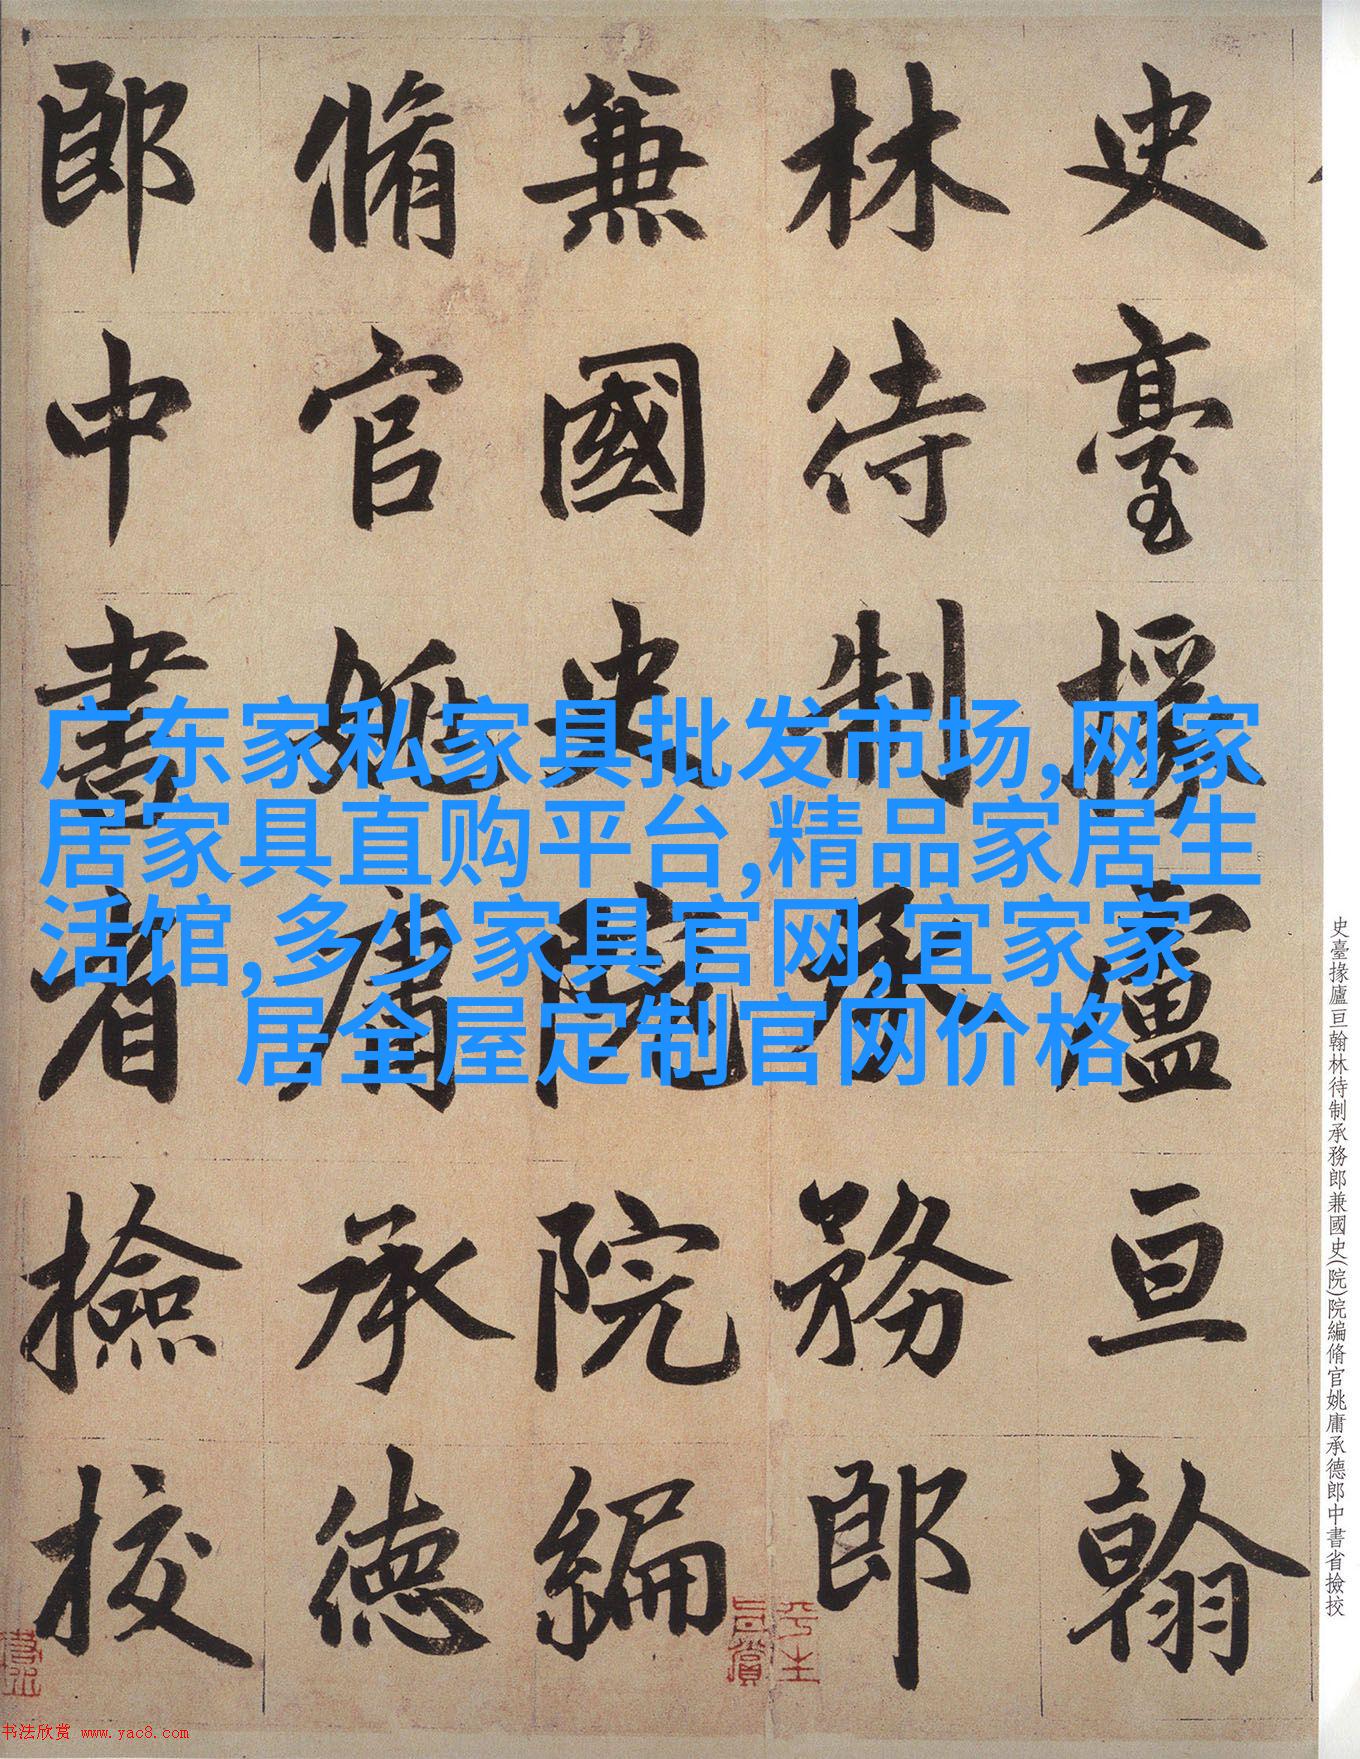 史臺掾盧亘翰
林待制承務郎
兼國史院院編
脩官姚庸承德
郎中書省撿挍
广东家私家具批发市场,网家
居家具直购平台,精品家居生
活馆,多少家具官网,宜家家
居全屋定制官网价格
史臺掾廬亘翰林待制承務郎兼國史(院)院編脩官姚庸承德郎中書省撿挍
书法欣赏 www.yac8.com